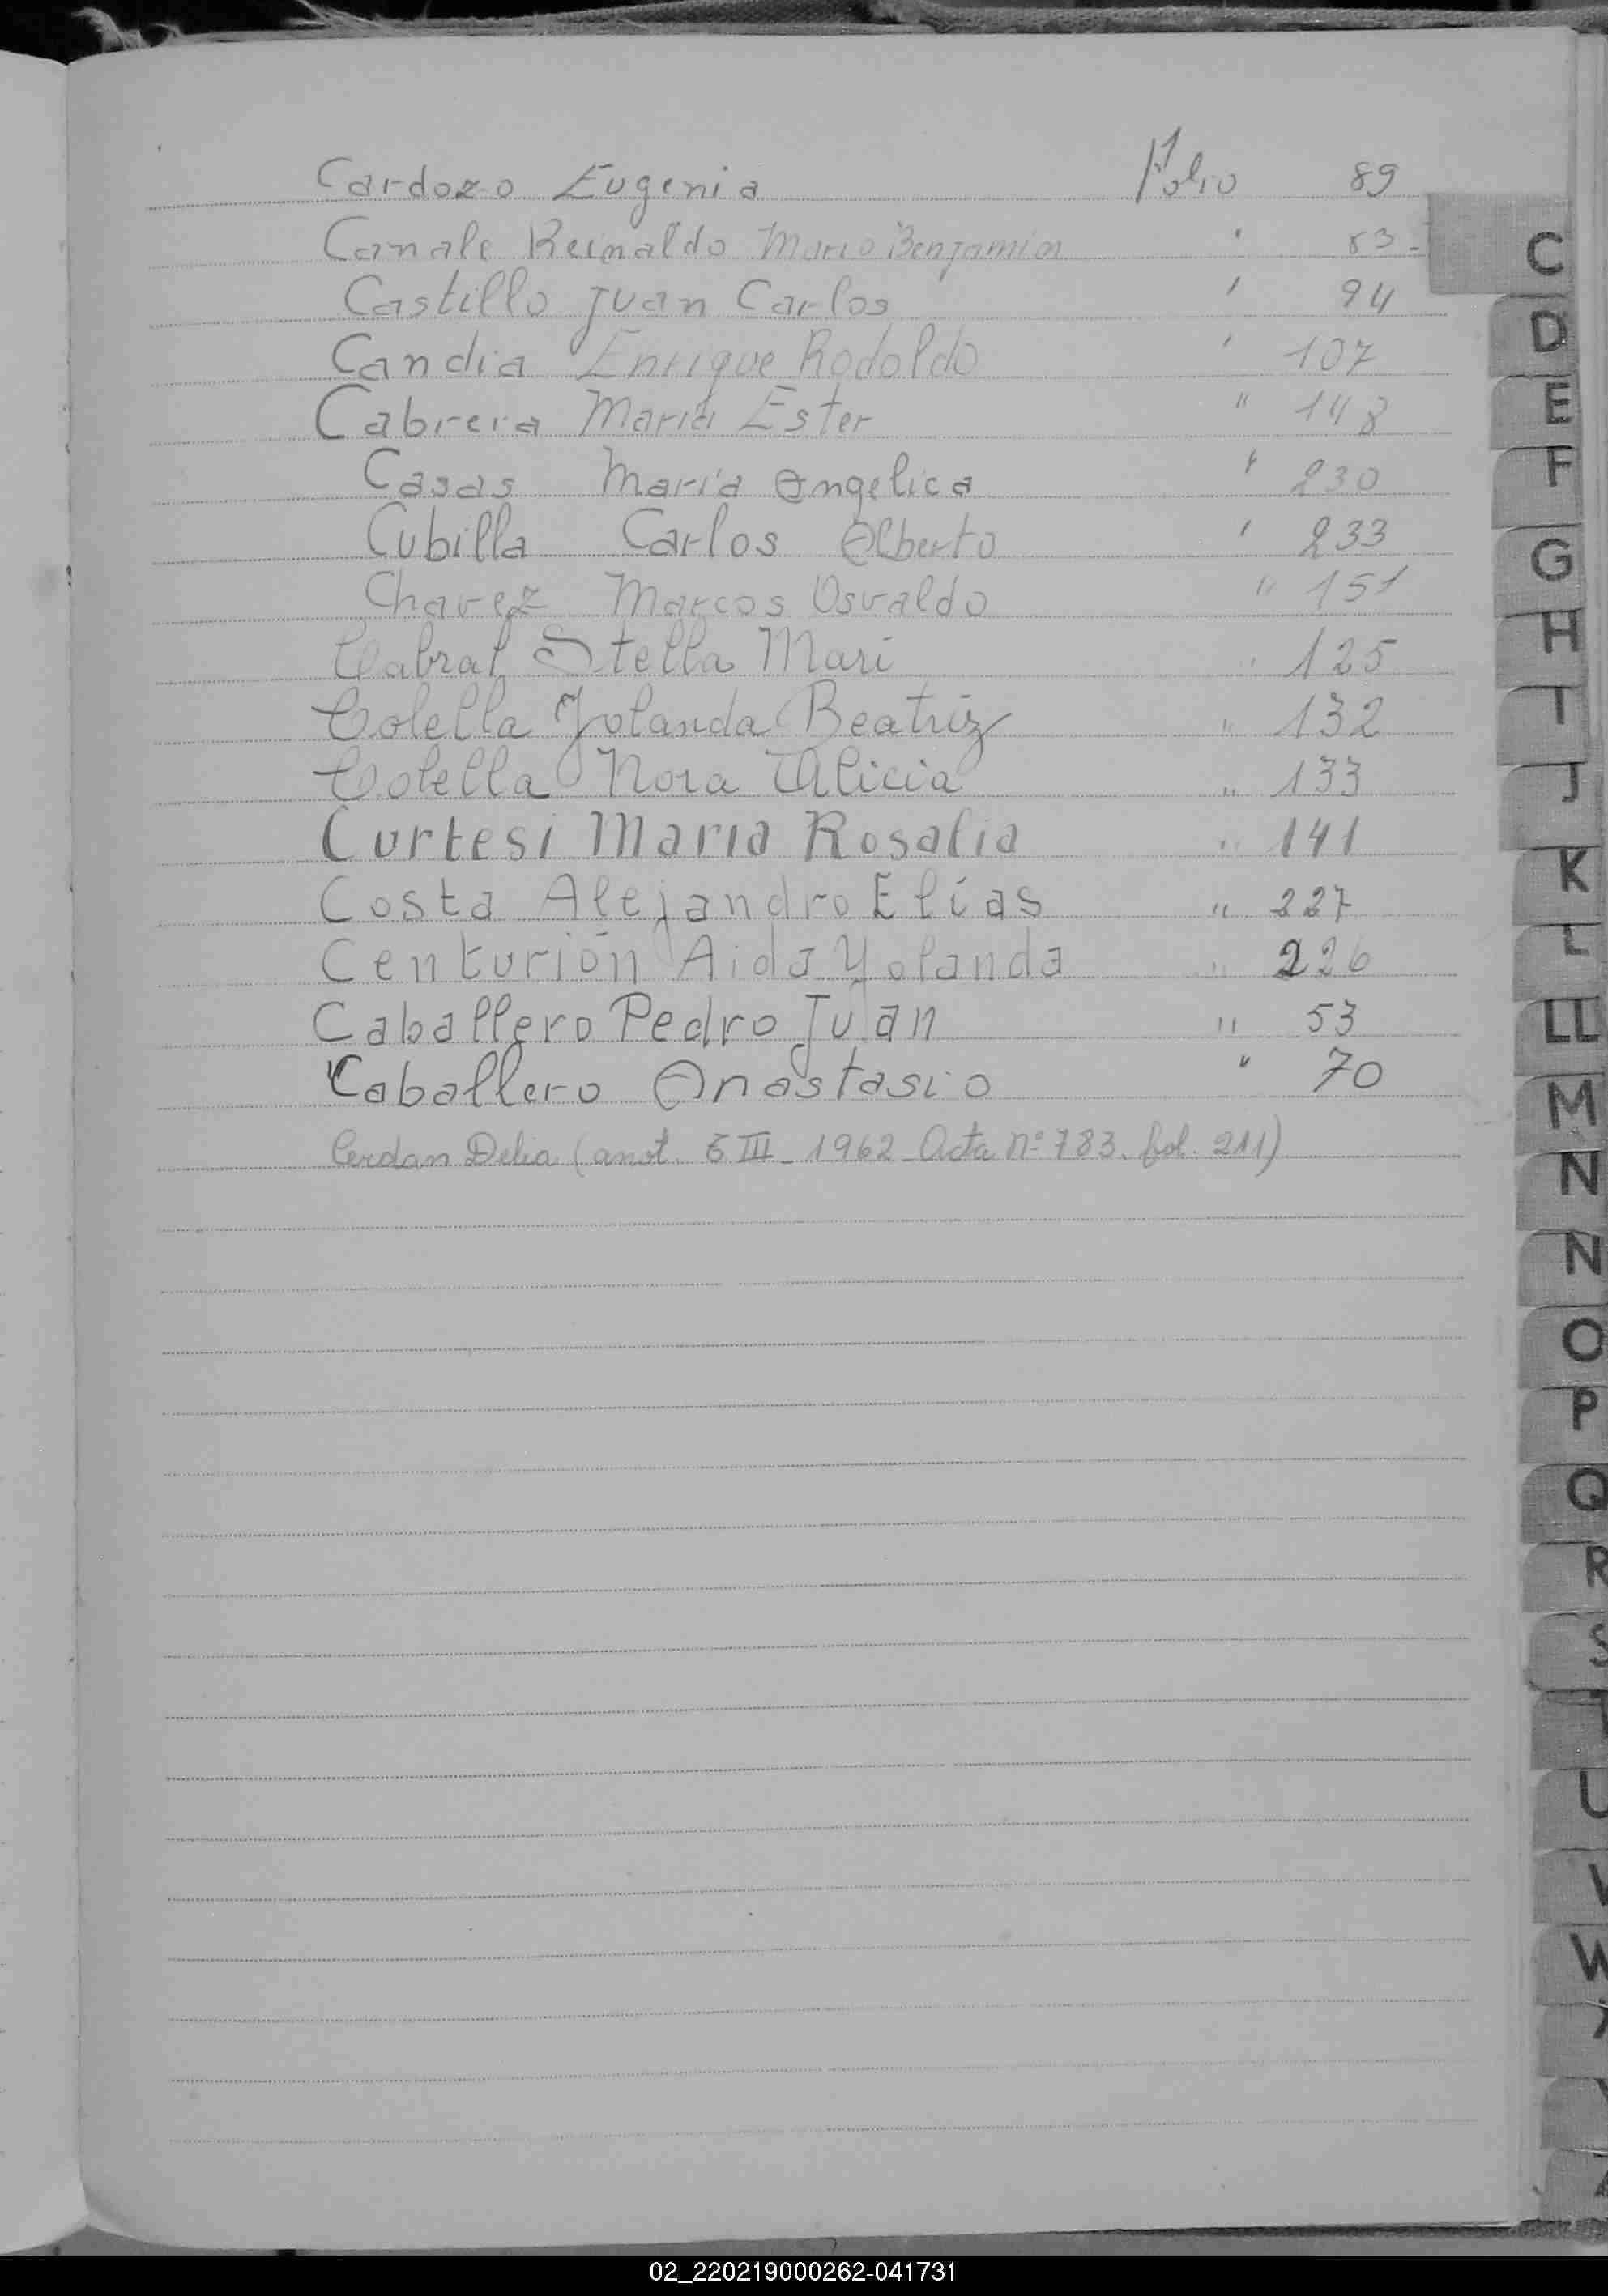 Cardozo Eugenia Folio 89
Canale Reinaldo Mario Benjamin " 83-
Castillo Juan Carlos " 94
Candia Enrique Rodoldo " 107
Cabrera Maria Ester " 148
Casas María Angelica " 230
Cubilla Carlos Alberto " 233
Chavez Marcos Osvaldo " 151
Cabral Stella Mari " 125
Colella Jolanda Beatriz " 132
Colella Nora Alicia " 133
Curtesi Maria Rosalia " 141
Costa Alejandro Elías " 227
Centurión Aida Yolanda " 226
Caballero Pedro Juan " 53
Caballero Anastasio " 70
Cerdan Delia (anot. 5 III - 1962 - Acta nº 783. fol. 211)
C
D
E
F
G
H
I
J
K
L
LL
M
N
N
O
P
Q
R
S
T
U
V
W
02_220219000262-041731